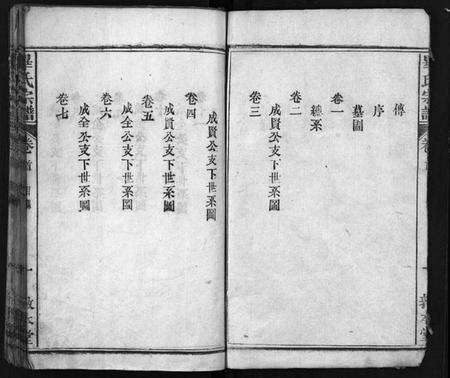 傳
序
墓圖
卷一
總系
卷二
成賢公支下世系圖
卷三
成賢公支下世系圖
卷四
成賢公支下世系圖
卷五
成全公支下世系圖
卷六
成全公支下世系圖
卷七
畢氏宗譜
卷首
敦本堂